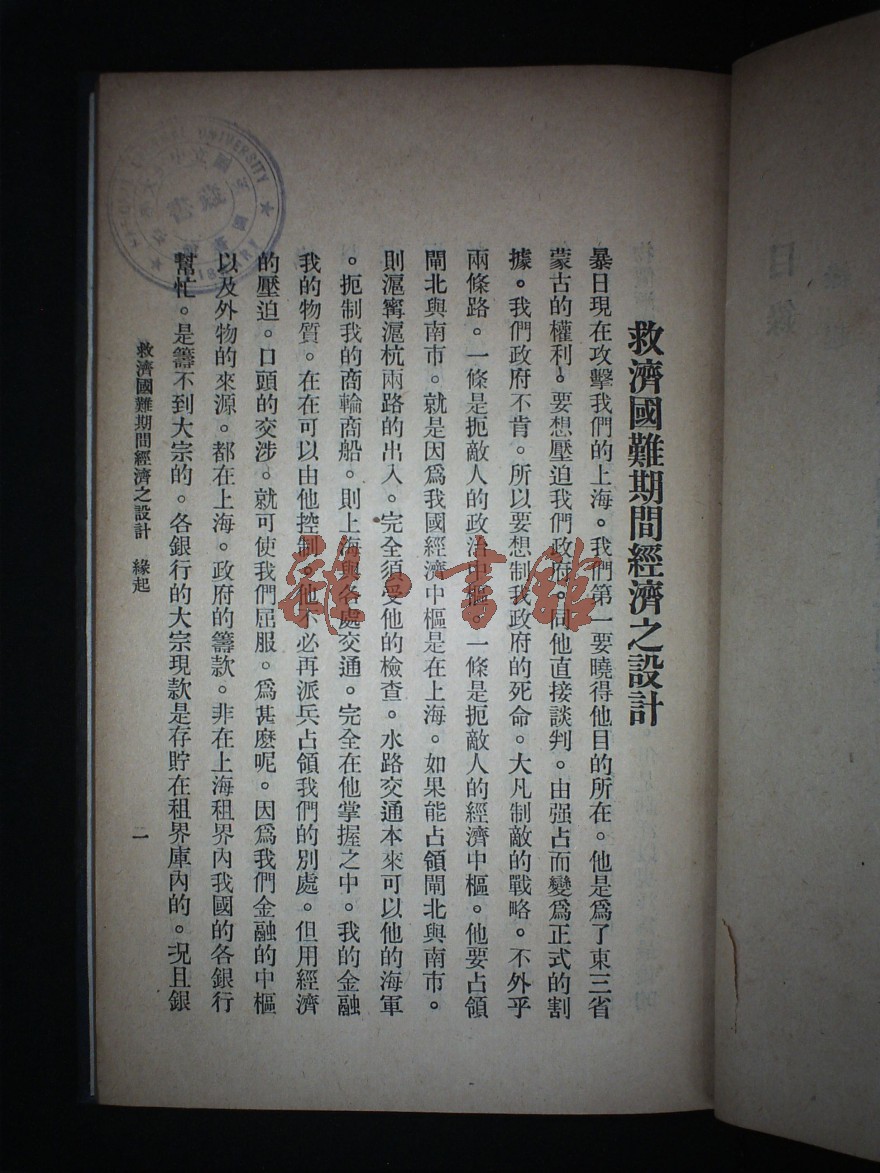 救濟國難期間經濟之設計
暴日現在攻擊我們的上海。我們第一要曉得他目的所在。他是爲了東三省
蒙古的權利。要想壓迫我們政府。同他直接談判。由强占而變爲正式的割
據。我們政府不肯。所以要想制我政府的死命。大凡制敵的戰略。不外乎
兩條路。一條是扼敵人的政治中樞。一條是扼敵人的經濟中樞。他要占領
閘北與南市。就是因爲我國經濟中樞是在上海。如果能占領閘北與南市。
則滬甯滬杭兩路的出入。完全須受他的檢查。水路交通本來可以他的海軍
。扼制我的商輪商船。則上海與各處交通。完全在他掌握之中。我的金融
我的物質。在在可以由他控制。他不必再派兵占領我們的別處。但用經濟
的壓迫。口頭的交涉。就可使我們屈服。爲甚麽呢。因爲我們金融的中樞
以及外物的來源。都在上海。政府的籌款。非在上海租界內我國的各銀行
幫忙。是籌不到大宗的。各銀行的大宗現款是存貯在租界庫內的。況且銀
救濟國難期間經濟之設計 緣起
一
雜·書館
目錄
UNIVERSITY